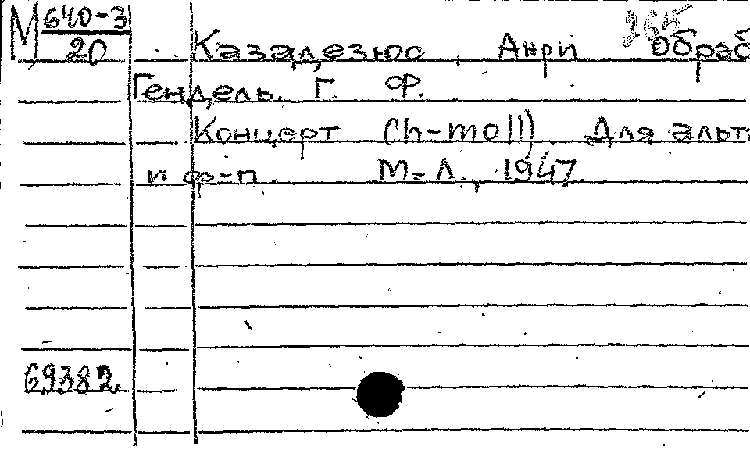 М 640-3
20
Казадезюс, Анри обраб
Гендель. Г. Ф.
Концерт (h-moll) Для альта
и ф-п. М.-Л., 1947
69382